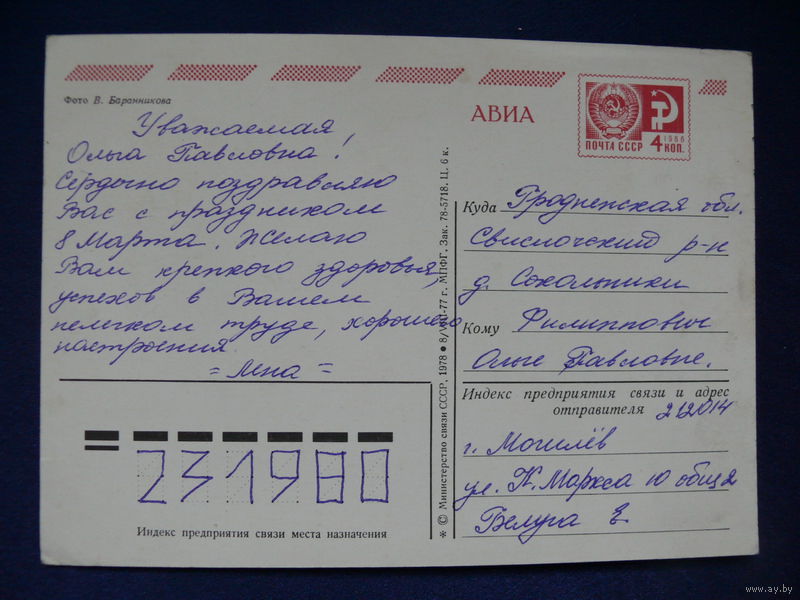 Фото В. Баранникова
АВИА
ПОЧТА СССР
1966
4 КОП.
Уважаемая
Ольга Павловна!
Сердечно поздравляю
Вас с праздником
8 Марта. Желаю
Вам крепкого здоровья,
успехов в Вашем
нелегком труде, хорошего
настроения.
= Мна =
231980
Индекс предприятия связи места назначения
* © Министерство связи СССР, 1978 ● 8/VIII-77 г. МПФГ. Зак. 78-5718. Ц. 6 к.
Куда Гродненская обл.
Свислочский р-н
д. Сокольники
Кому Филиппович
Ольге Павловне.
Индекс предприятия связи и адрес
отправителя 212014
г. Могилёв
ул. К. Маркса 10 общ 2
Белуга
www.ay.by